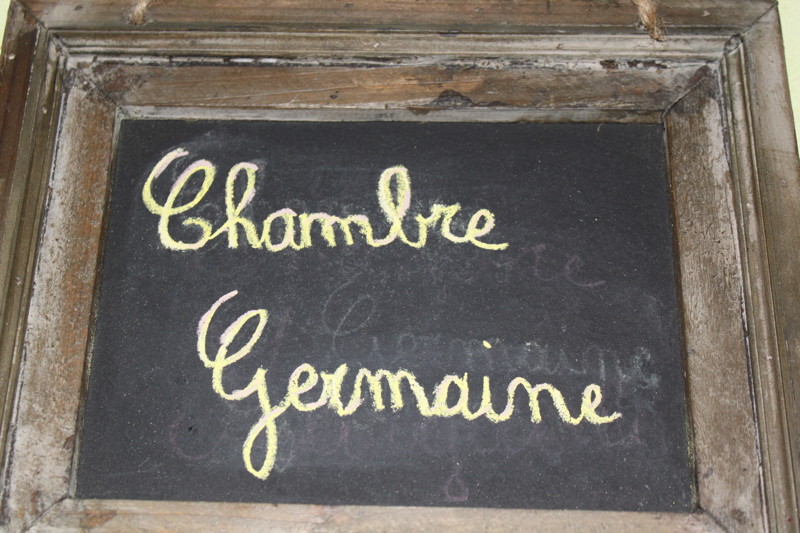 Chambre
Germaine